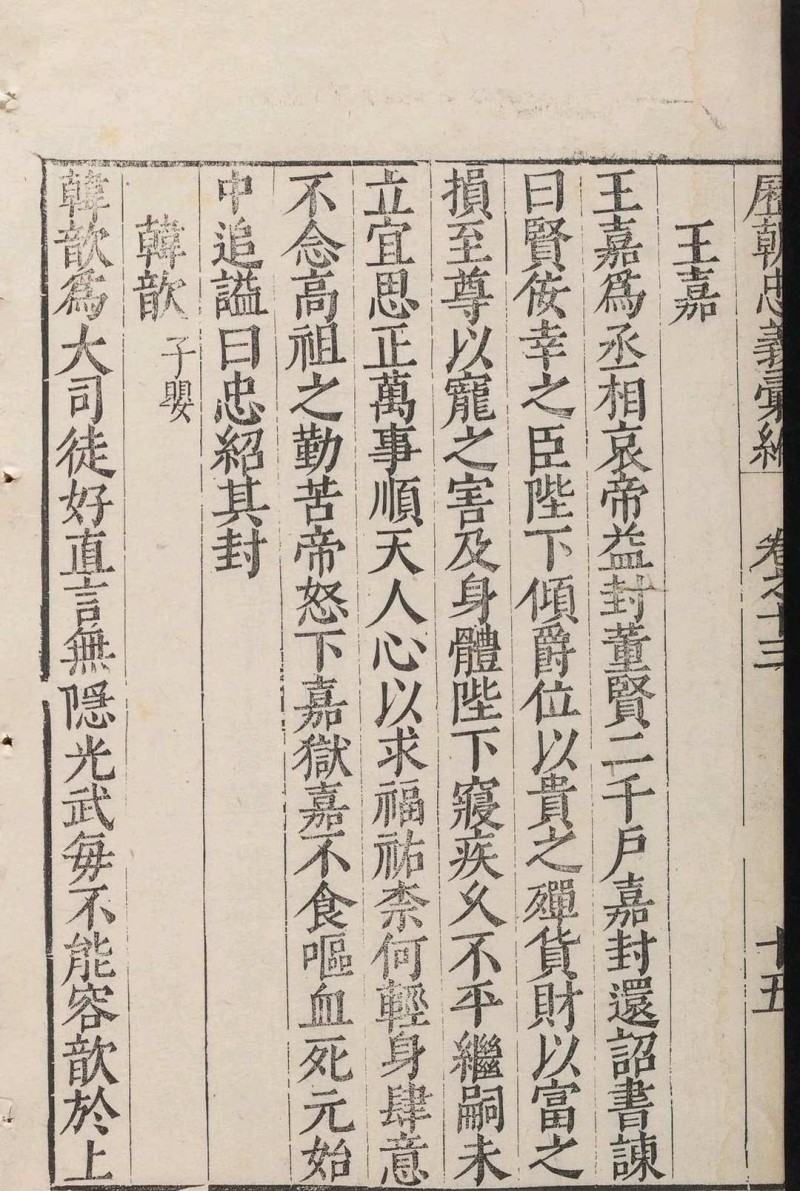 歷朝忠義彙編 卷之十三 十五
王嘉
王嘉爲丞相哀帝益封董賢二千戶嘉封還詔書諫
曰賢佞幸之臣陛下傾爵位以貴之殫貨財以富之
損至尊以寵之害及身體陛下寢疾乆不平繼嗣未
立宜思正萬事順天人心以求福祐柰何輕身肆意
不念高祖之勤苦帝怒下嘉獄嘉不食嘔血死元始
中追謚曰忠紹其封
韓歆 子嬰
韓歆爲大司徒好直言無隱光武毎不能容歆於上